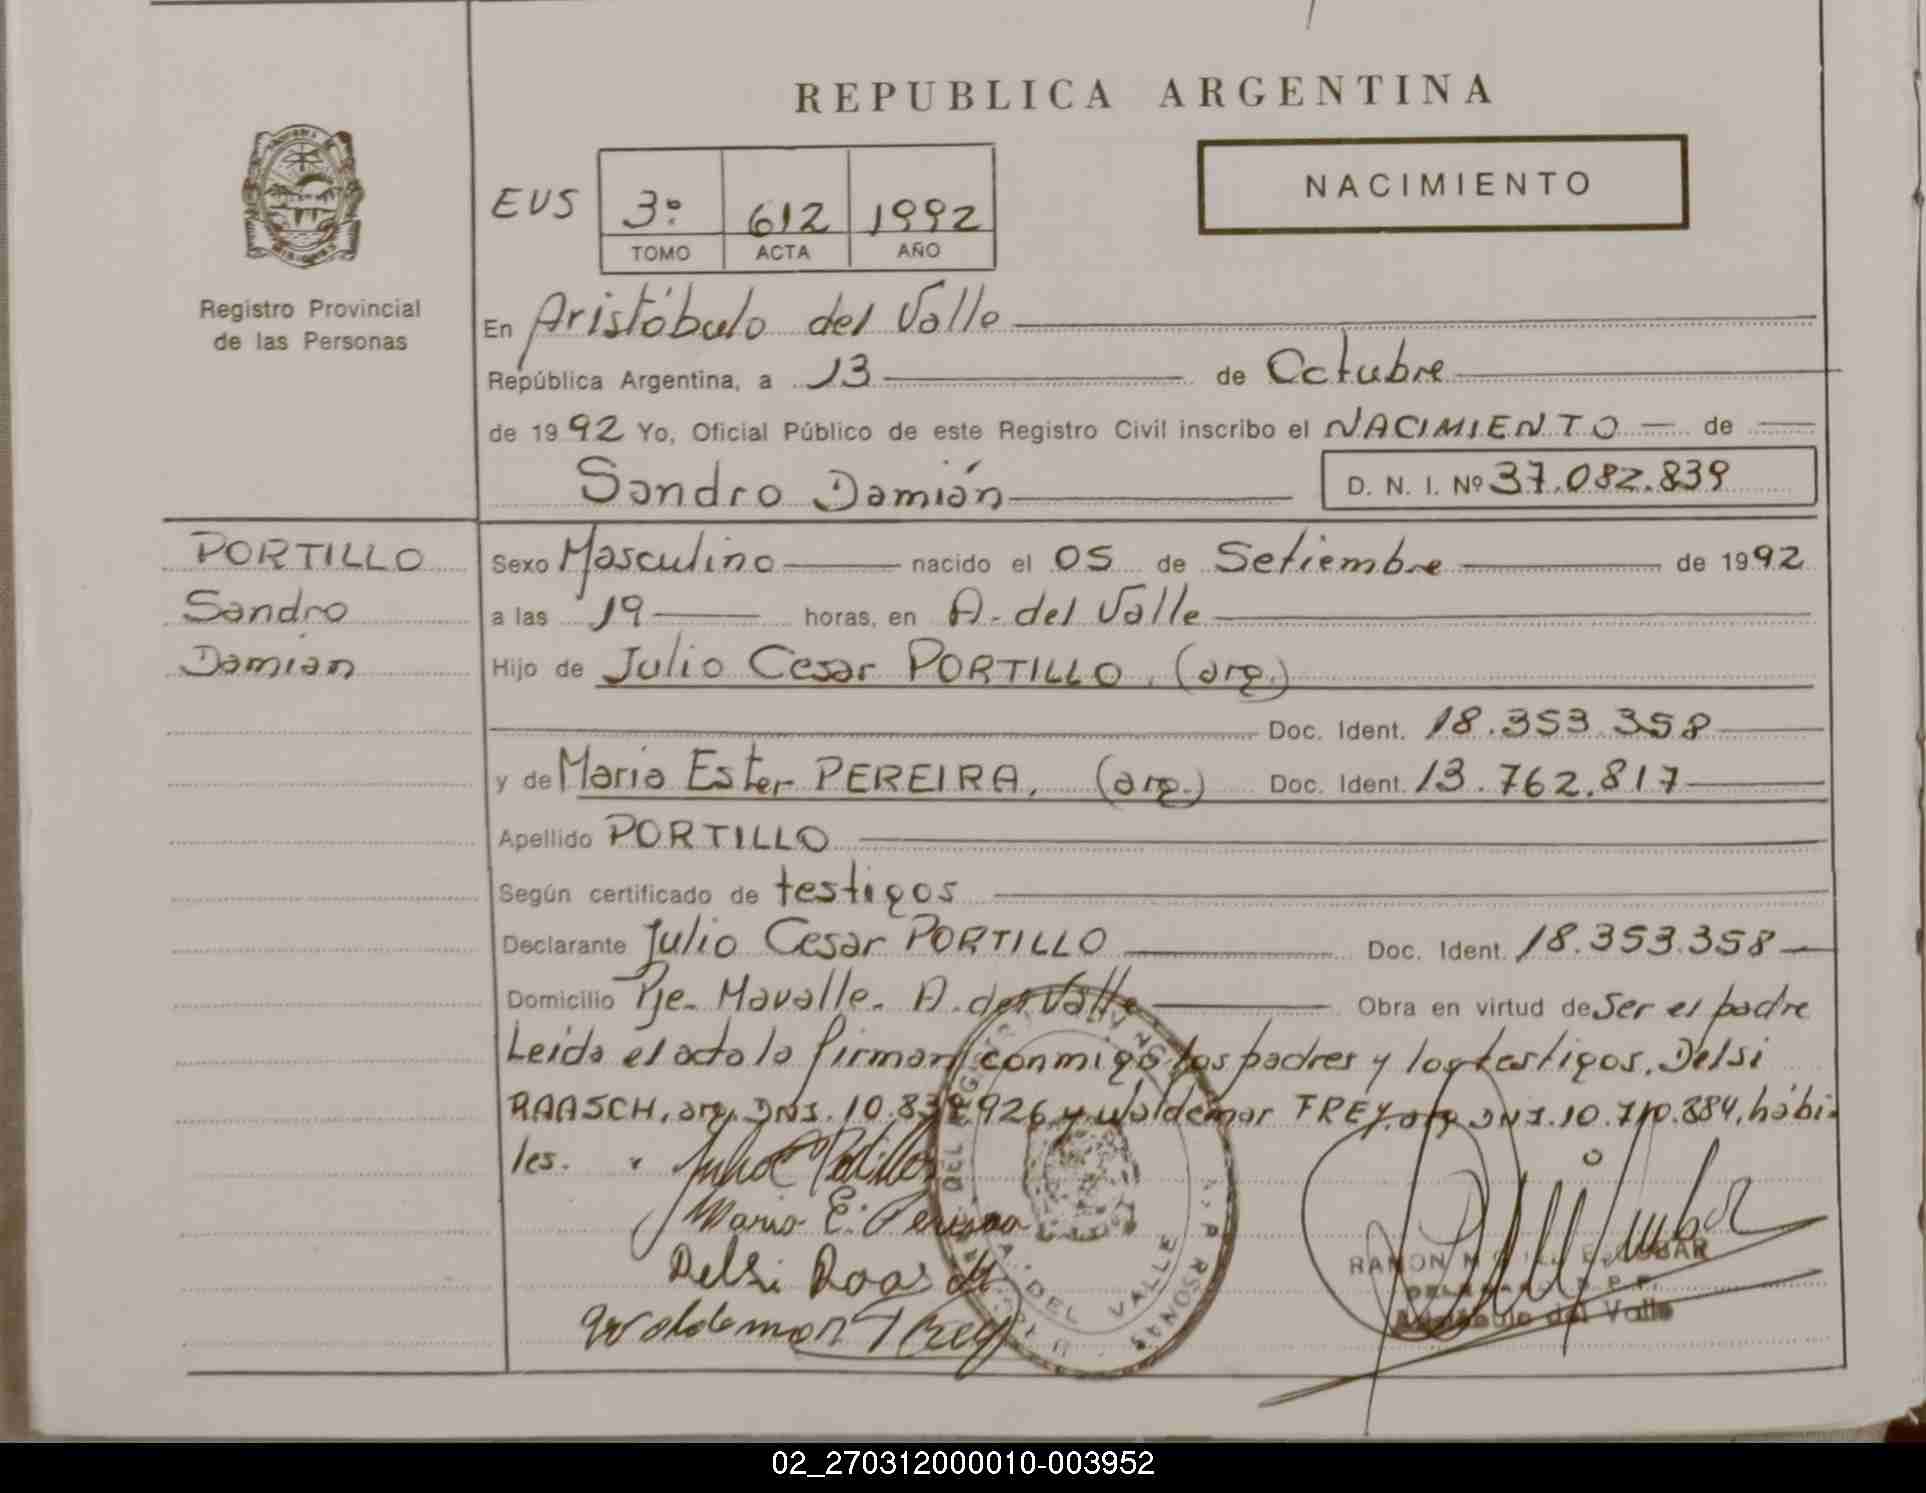 REPUBLICA ARGENTINA
NACIMIENTO
EUS 3º 612 1992
TOMO ACTA AÑO
Registro Provincial
de las Personas
En Aristóbulo del Valle
República Argentina, a 13 de Octubre
de 1992 Yo, Oficial Público de este Registro Civil inscribo el NACIMIENTO de
Sandro Damián D. N. I. Nº 37.082.839
PORTILLO
Sandro
Damian
Sexo Masculino nacido el 05 de Setiembre de 1992
a las 19 horas, en A. del Valle
Hijo de Julio Cesar PORTILLO. (arg.)
Doc. Ident. 18.353.358
y de Maria Ester PEREIRA. (arg.) Doc. Ident. 13.762.817
Apellido PORTILLO
Según certificado de testigos
Declarante Julio Cesar PORTILLO Doc. Ident. 18.353.358
Domicilio Pje. Mavalle. A. del Valle Obra en virtud de Ser el padre
Leida el acta la firman conmigo los padres y los testigos. Delsi
RAASCH, arg. DNI. y Waldemar FREY. arg DNI. 10.710.884, hábi-
les.
Julio C Portillo
Maria E. Pereira
Delsi Raasch
Waldemar Frey
A. DEL VALLE
RAMON ESCOBAR
Aristobulo del Valle
02_270312000010-003952